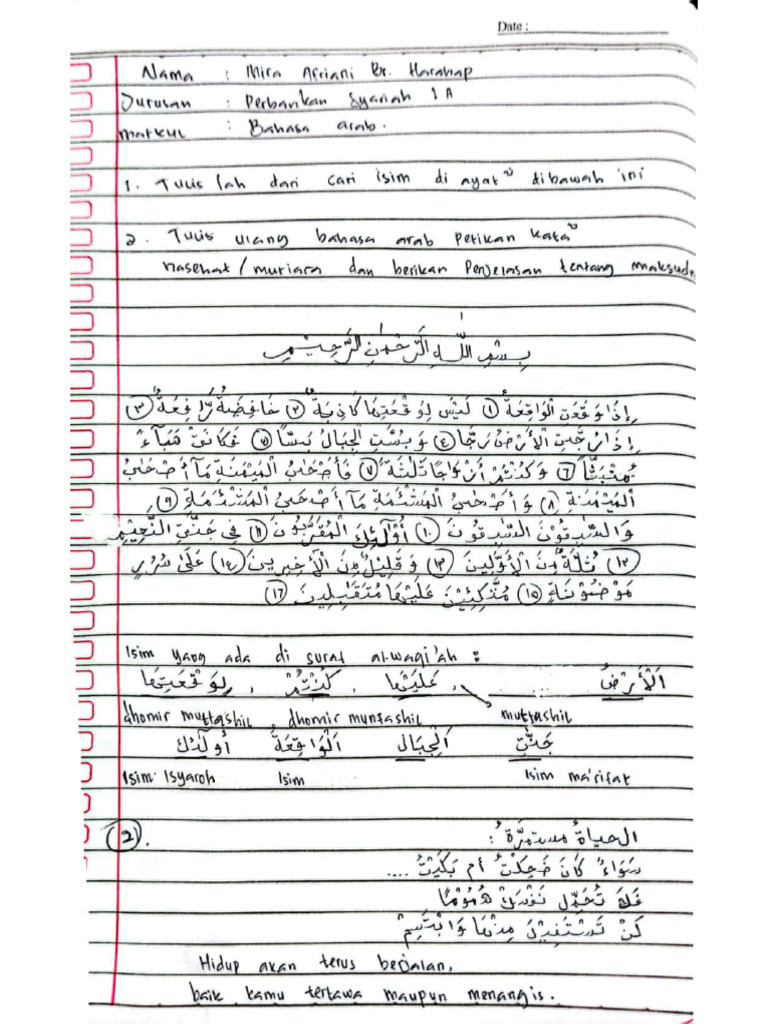 Date :
Nama : Mira Afriani Br. Harahap
Jurusan : Perbankan Syariah 1A
Matkul : Bahasa arab.
1. Tulis lah dari cari isim di ayat² dibawah ini
2. Tulis ulang bahasa arab petikan kata²
nasehat/mutiara dan berikan penjelasan tentang maksudn
بِسْمِ اللَّهِ الرَّحْمٰنِ الرَّحِيْمِ
إِذَا وَقَعَتِ الْوَاقِعَةُ ١ لَيْسَ لِوَقْعَتِهَا كَاذِبَةٌ ٢ خَافِضَةٌ رَّافِعَةٌ ٣
إِذَا رُجَّتِ الْأَرْضُ رَجًّا ٤ وَبُسَّتِ الْجِبَالُ بَسًّا ٥ فَكَانَتْ هَبَآءً
مُنْبَثًّا ٦ وَكُنْتُمْ أَزْوَاجًا ثَلٰثَةً ٧ فَأَصْحٰبُ الْمَيْمَنَةِ مَآ أَصْحٰبُ
الْمَيْمَنَةِ ٨ وَأَصْحٰبُ الْمَشْئَمَةِ مَآ أَصْحٰبُ الْمَشْئَمَةِ ٩
وَالسّٰبِقُوْنَ السّٰبِقُوْنَ ١٠ أُولٰٓئِكَ الْمُقَرَّبُوْنَ ١١ فِي جَنّٰتِ النَّعِيْمِ
١٢ ثُلَّةٌ مِّنَ الْأَوَّلِيْنَ ١٣ وَقَلِيْلٌ مِّنَ الْأٰخِرِيْنَ ١٤ عَلٰى سُرُرٍ
مَوْضُوْنَةٍ ١٥ مُتَّكِئِيْنَ عَلَيْهَا مُتَقٰبِلِيْنَ ١٦
Isim yang ada di surat al-waqi'ah :
الْأَرْضُ ..... عَلَيْهَا , كُنْتُمْ , لِوَقْعَتِهَا
dhomir muttashil , dhomir munfashil muttashil
جَنّٰتِ الْجِبَالُ الْوَاقِعَةُ أُولٰٓئِكَ
Isim Isyaroh Isim Isim ma'rifat
(2).
الحياةُ مستمرّةٌ :
سَوَاءً كَانَ ضَحِكْتَ أم بَكَيْتَ ....
فَلَا تُحَمِّل نَفْسَكَ هُمُوْمًا
لَنْ تَسْتَفِيْدَ مِنْهَا وَابْتَسِمْ
Hidup akan terus berjalan,
baik kamu tertawa maupun menangis.